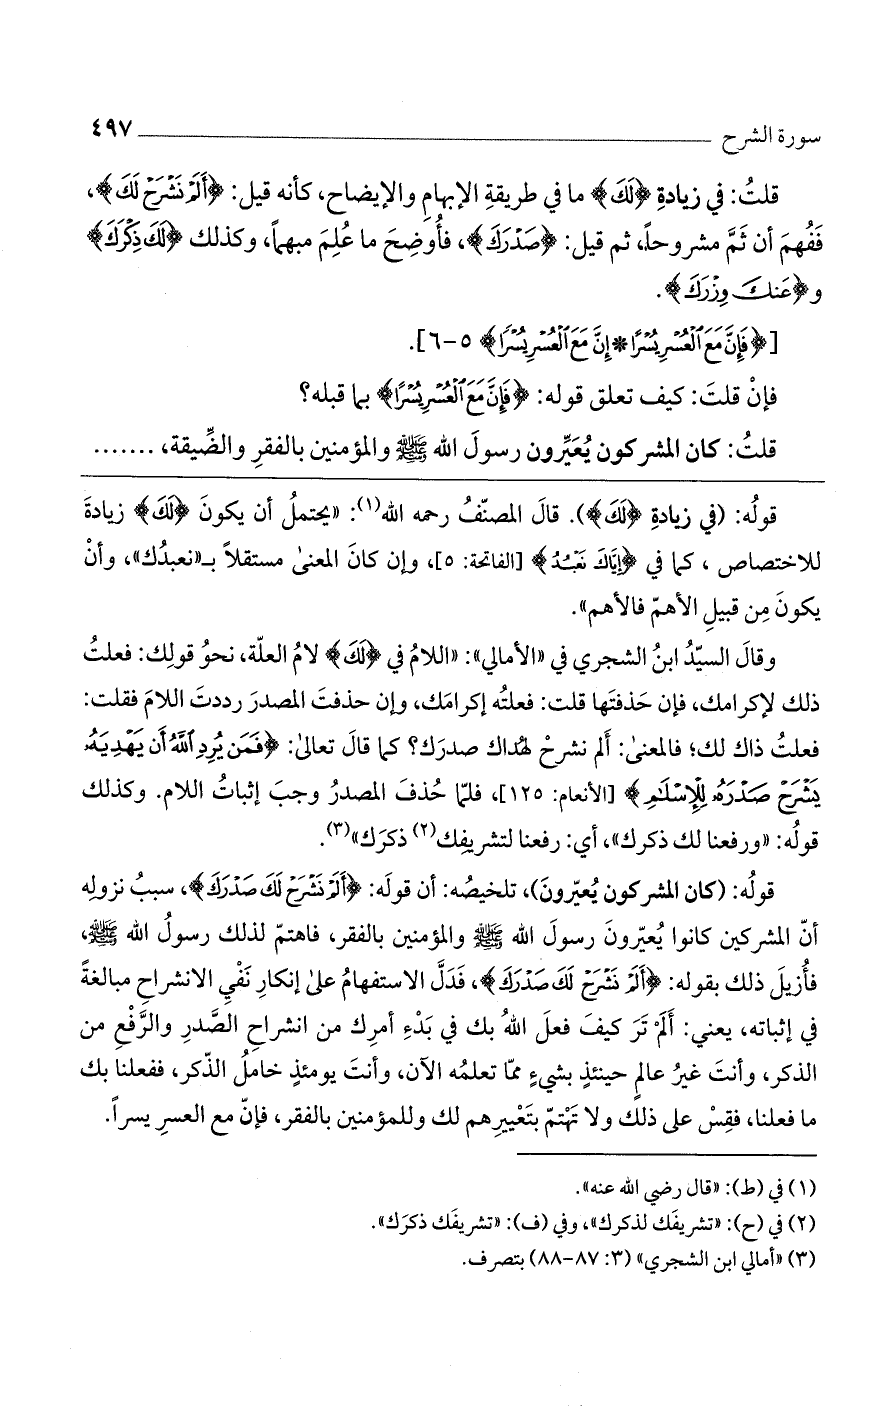 سورة الشرح ٤٩٧
قلتُ: في زيادةِ ﴿لَكَ﴾ ما في طريقةِ الإبهامِ والإيضاح، كأنه قيل: ﴿أَلَمْ نَشْرَحْ لَكَ﴾،
فَفُهِمَ أن ثَمَّ مشروحاً، ثم قيل: ﴿صَدْرَكَ﴾، فأُوضِحَ ما عُلِمَ مبهماً، وكذلك ﴿لَكَ ذِكْرَكَ﴾
و﴿عَنكَ وِزْرَكَ﴾.
[﴿فَإِنَّ مَعَ ٱلْعُسْرِ يُسْرًا * إِنَّ مَعَ ٱلْعُسْرِ يُسْرًا﴾ ٥-٦].
فإنْ قلتَ: كيف تعلق قوله: ﴿فَإِنَّ مَعَ ٱلْعُسْرِ يُسْرًا﴾ بما قبله؟
قلتُ: كان المشركون يُعَيِّرون رسولَ الله ﷺ والمؤمنين بالفقرِ والضِّيقة، .......
قولُه: (في زيادةِ ﴿لَكَ﴾). قالَ المصنّفُ رحمه الله(١): «يحتملُ أن يكونَ ﴿لَكَ﴾ زيادةً
للاختصاص ، كما في ﴿إِيَّاكَ نَعْبُدُ﴾ [الفاتحة: ٥]، وإن كانَ المعنىٰ مستقلاً بـ«نعبدُك»، وأنْ
يكونَ مِن قبيلِ الأهمّ فالأهم».
وقالَ السيّدُ ابنُ الشجري في «الأمالي»: «اللامُ في ﴿لَكَ﴾ لامُ العلّة، نحوُ قولِك: فعلتُ
ذلك لإكرامك، فإن حَذفتَها قلت: فعلتُه إكرامَك، وإن حذفتَ المصدرَ رددتَ اللامَ فقلت:
فعلتُ ذاك لك؛ فالمعنىٰ: ألم نشرحْ لهُداك صدرَك؟ كما قالَ تعالىٰ: ﴿فَمَن يُرِدِ ٱللَّهُ أَن يَهْدِيَهُۥ
يَشْرَحْ صَدْرَهُۥ لِلْإِسْلَٰمِ﴾ [الأنعام: ١٢٥]، فلمّا حُذفَ المصدرُ وجبَ إثباتُ اللام. وكذلك
قولُه: «ورفعنا لك ذكرك»، أي: رفعنا لتشريفِك(٢) ذكرَك»(٣).
قولُه: (كان المشركون يُعيّرونَ)، تلخيصُه: أن قولَه: ﴿أَلَمْ نَشْرَحْ لَكَ صَدْرَكَ﴾، سببُ نزولِه
أنّ المشركين كانوا يُعيّرونَ رسولَ الله ﷺ والمؤمنين بالفقر، فاهتمّ لذلك رسولُ الله ﷺ،
فأُزيلَ ذلك بقوله: ﴿أَلَمْ نَشْرَحْ لَكَ صَدْرَكَ﴾، فَدَلَّ الاستفهامُ علىٰ إنكارِ نَفْيِ الانشراحِ مبالغةً
في إثباته، يعني: أَلَمْ تَرَ كيفَ فعلَ اللهُ بك في بَدْءِ أمرِك من انشراحِ الصَّدرِ والرَّفْعِ من
الذكر، وأنتَ غيرُ عالمٍ حينئذٍ بشيءٍ ممّا تعلمُه الآن، وأنتَ يومئذٍ خاملُ الذّكر، ففعلنا بك
ما فعلنا، فقِسْ على ذلك ولا تَهْتمّ بتَعْييرِهم لك وللمؤمنين بالفقر، فإنّ مع العسرِ يسراً.
(١) في (ط): «قال رضي الله عنه».
(٢) في (ح): «تشريفَك لذكرك»، وفي (ف): «تشريفَك ذكرَك».
(٣) «أمالي ابن الشجري» (٣: ٨٧-٨٨) بتصرف.